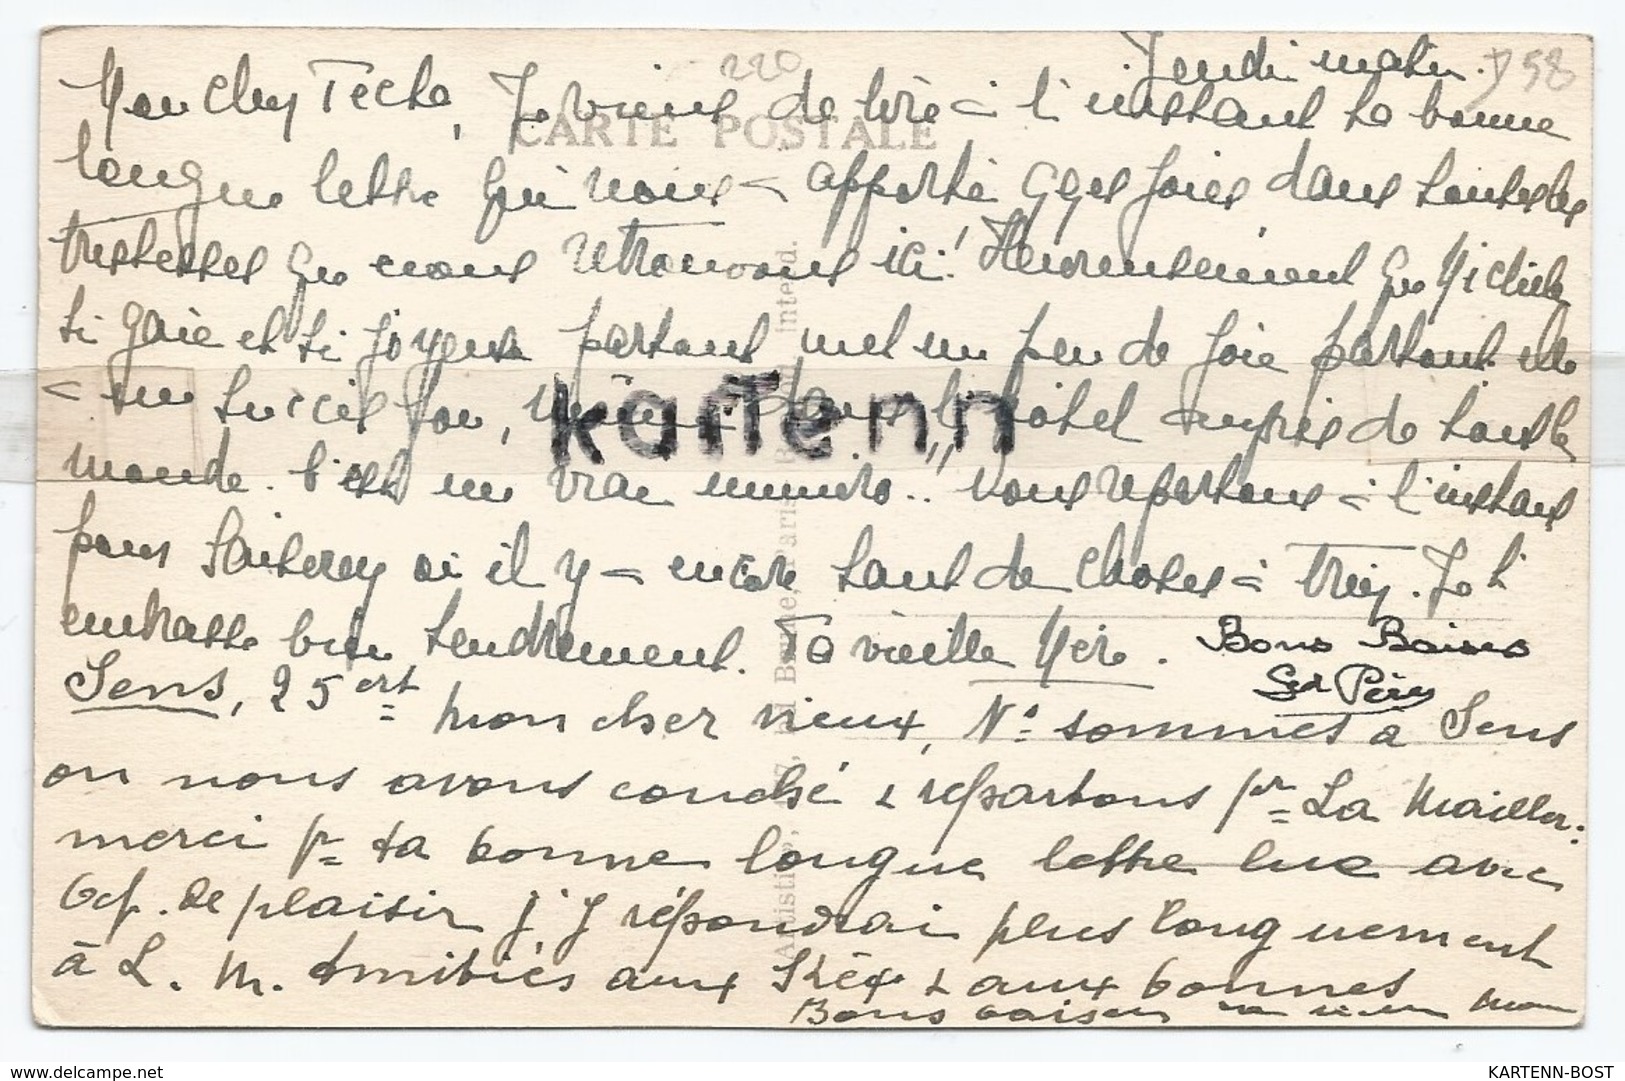 220
Jeudi matin. D 58
CARTE POSTALE
Mon cher Téché, Je viens de lire à l'instant ta bonne
longue lettre qui nous a apporté qqes joies dans toutes les
tristesses que nous retrouvons ici! Heureusement que Michele
si gaie et si joyeuse partout met un peu de joie partout elle
a un succès fou, même dans l'hôtel auprès de tout le
monde. C'est un vrai numéro..!! Nous repartons à l'instant
pour où il y a encore tant de choses à trier. Je t'
embrasse bien tendrement. Ta vieille Mère. Bons Baisers
Sens, 25 crt mon cher vieux, Ns sommes à Sens
où nous avons couché & repartons pr La Mailler.
merci pr ta bonne longue lettre lue avec
bcp. de plaisir j'y répondrai plus longuement
à L. M. Amitiés aux & aux bonnes
Bons baisers mon
kartenn
Paris
inted.
delcampe.net
KARTENN-BOST